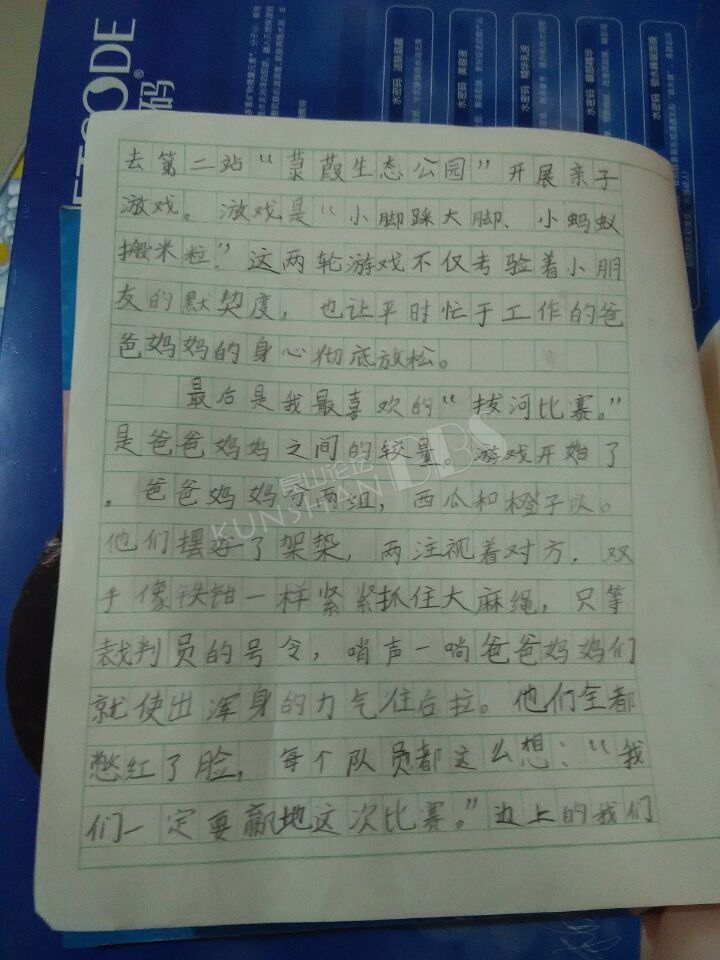 去第二站“菉葭生态公园”开展亲子
游戏。游戏是“小脚踩大脚、小蚂蚁
搬米粒！”这两轮游戏不仅考验着小朋
友的默契度，也让平时忙于工作的爸
爸妈妈的身心彻底放松。
最后是我最喜欢的“拔河比赛。”
是爸爸妈妈之间的较量。游戏开始了
。爸爸妈妈分两组，西瓜和橙子队。
他们摆好了架势，两注视着对方，双
手像铁钳一样紧紧抓住大麻绳，只等
裁判员的号令，哨声一响爸爸妈妈们
就使出浑身的力气往后拉。他们全都
憋红了脸，每个队员都这么想：“我
们一定要赢地这次比赛。”边上的我们
昆山论坛 BBS
KUNSHAN
CODE
码
水密码
水密码 美容液
水密码 精华乳液
水密码
水密码